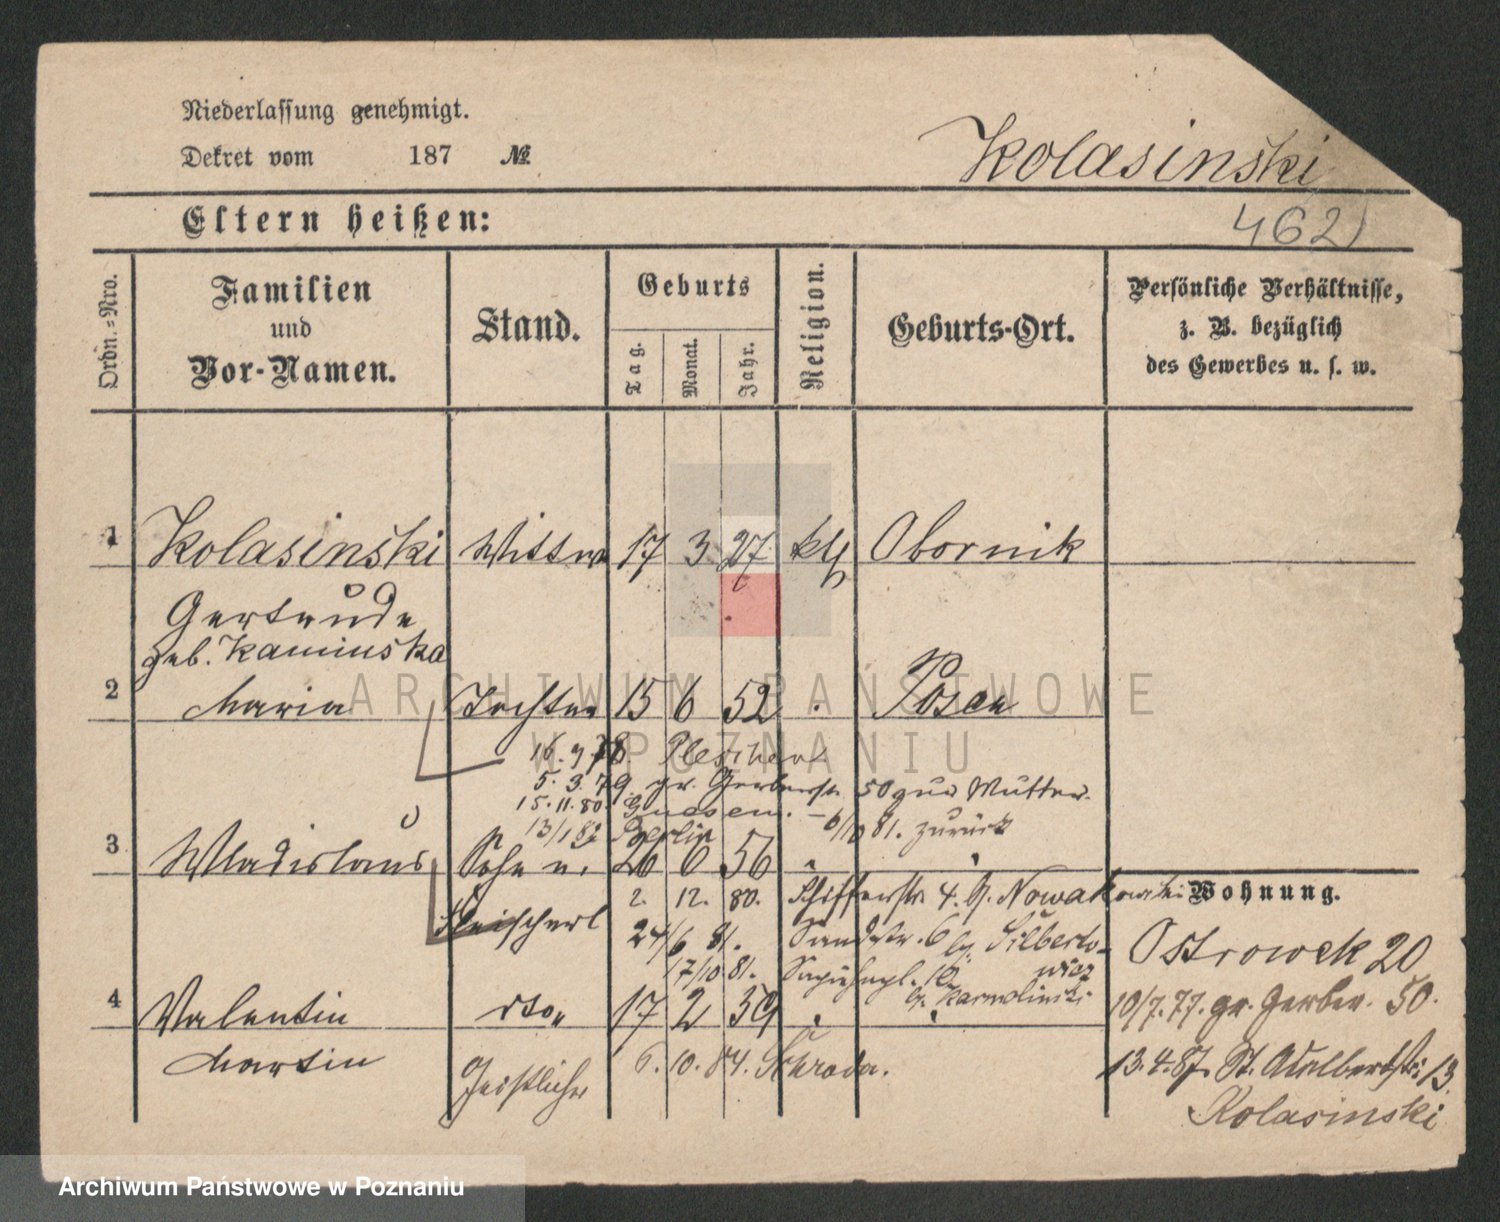 Niederlassung genehmigt.
Dekret vom 187 №
Kolasinski
Eltern heißen:
462
Ordn.=Nro.
Familien
und
Vor-Namen.
Stand.
Geburts
Tag.
Monat.
Jahr.
Religion.
Geburts-Ort.
Persönliche Verhältnisse,
z. B. bezüglich
des Gewerbes u. s. w.
1 Kolasinski Wittwe 17 3 27 kth Obornik
Gertrude
geb. Kaminska
2 Maria Tochter 15 6 52 Posen
16. 9 78 Pleschen
5. 3. 79. gr. Gerberstr. 50 zur Mutter.
15. 11. 80. Gnesen. – 6/10 81. zurück
13/1 82 Berlin
3 Wladislaus Sohn u. 26 6 56
Fleischerl
2. 12. 80. Schifferstr. 4. b. Nowakowski
24/6 81. Sandstr. 6 bei Silberto-
wicz
17/10 81. Sapiehapl. 10.
b. Karmolinski
Wohnung.
Ostrowek 20
4 Valentin dto. 17 2 59
Martin
Geistlicher
6. 10. 84. Schroda.
10/7. 77. gr. Gerber. 50.
13. 4. 87. St. Adalbertstr. 13
Kolasinski
ARCHIWUM PAŃSTWOWE
W POZNANIU
Archiwum Państwowe w Poznaniu